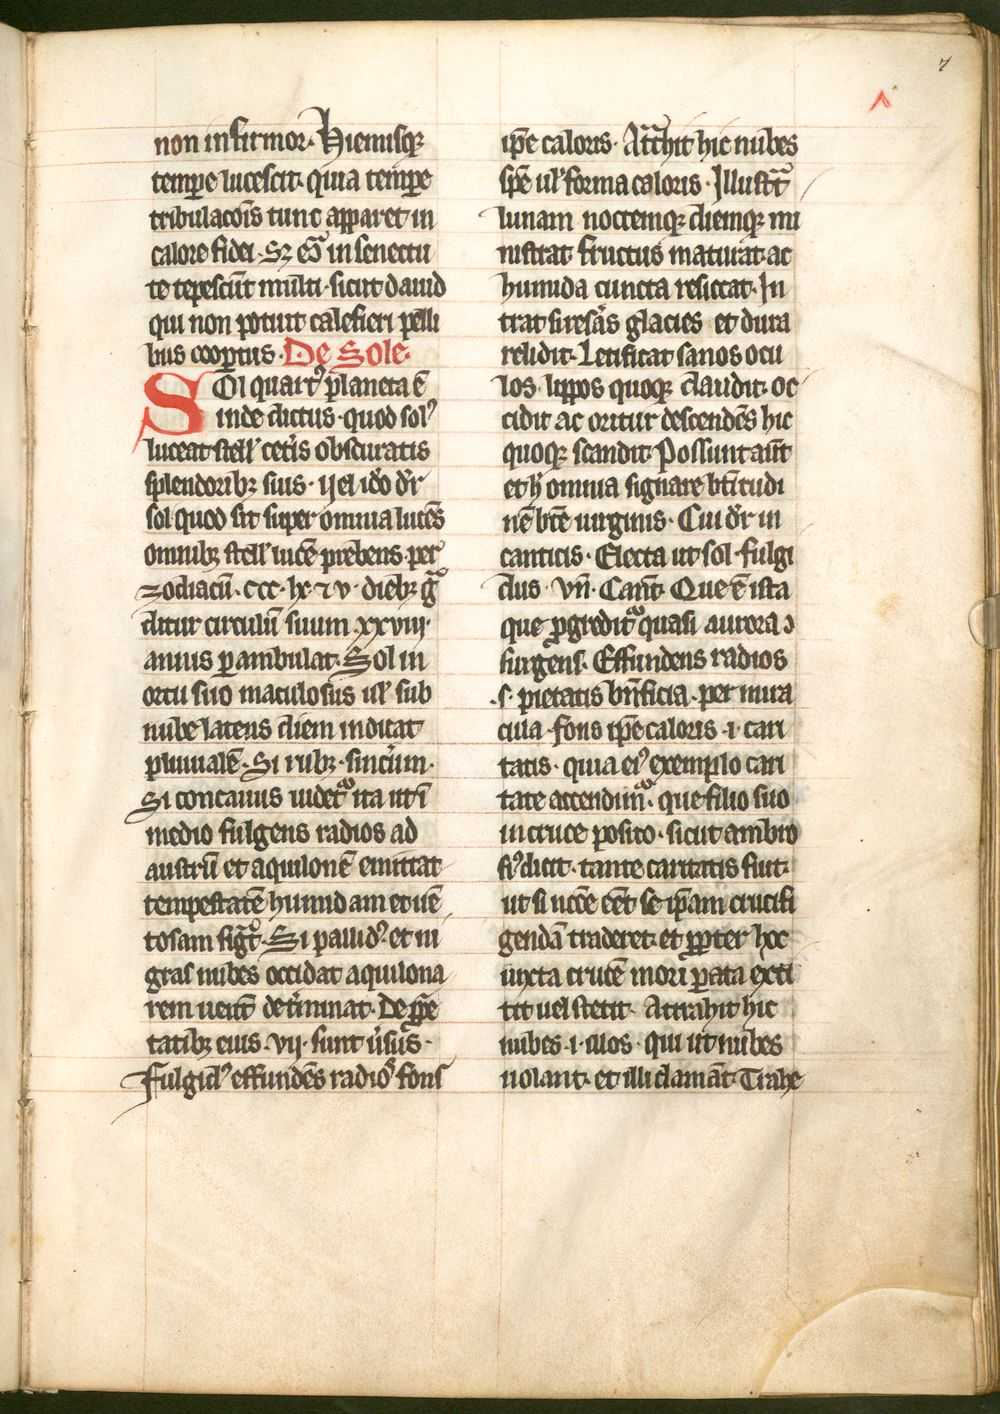 7
non infirmor· Hiemisq̢
tempe lucescit· quia tempe
tribulacōis tunc apparet in
calore fidei· Sz eciā in senectu
te tepescūt multi· sicut dauid
qui non potuit calefieri pelli
bus coopertus· De Sole·
SOl quartꝰ planeta ē
inde dictus· quod solꝰ
luceat stell' cetis obscuratis
splendoribꝫ suis· uel ido dr
sol quod sit super omnia lucēs
omnibꝫ stell' lucē prebens· per
zodiacū· ccc· lx· ⁊ v· diebꝫ g̃
ditur circulū suum xxviij·
annis pambulat· Sol in
ortu suo maculosus ul' sub
nube latens diem indicat
pluuialē· Si rubꝫ· sincerum·
Si concauus uidet ita ut ī
medio fulgens radios ad
austrū et aquilonē emittat
tempestatē humidam et uē
tosam sig̃t· Si pallidꝰ· et ni
gras nubes occidat aquilona
rem uentū determinat· De ppe
tatibꝫ eius· vij· sunt ūsus·
Fulgidꝰ effundēs radioꝰ fons
ipe caloris· Attrahit hic nubes
spe ul' forma caloris· Illustrat
lunam noctemq̢ diemq̢ mi
nistrat fructus maturat ac
humida cuncta resiccat· In
trat fu͛es͛as glacies et dura
relidit· Letificat sanos ocu
los lippos quoq̢ claudit· oc
cidit ac oritur descendēs hic
quoq̢ scandit· Possunt aūt
et h̄ omnia signare btitudi
nē bte uirginis· Cui dr in
canticis· Electa ut sol· fulgi
dus· Vn̄· Cant· Que ē ista
que pgredit quasi aurora ɔ
surgens· Effundens radios
·s· pietatis bn̄ficia· per mira
cula· fons ipe caloris ·i· cari
tatis· quia eiꝰ exemplo cari
tate accendim· que filio suo
in cruce posito· sicut ambro
siꝰ dicit· tante caritatis fuit·
ut si ncc̄e eēt se ipam crucifi
gendā traderet· et ppter hoc
iuxta crucē mori pata exti
tit uel stetit· Attrahit hic
nubes ·i· illos· qui ut nubes
uolant· et illi clamāt· Trahe